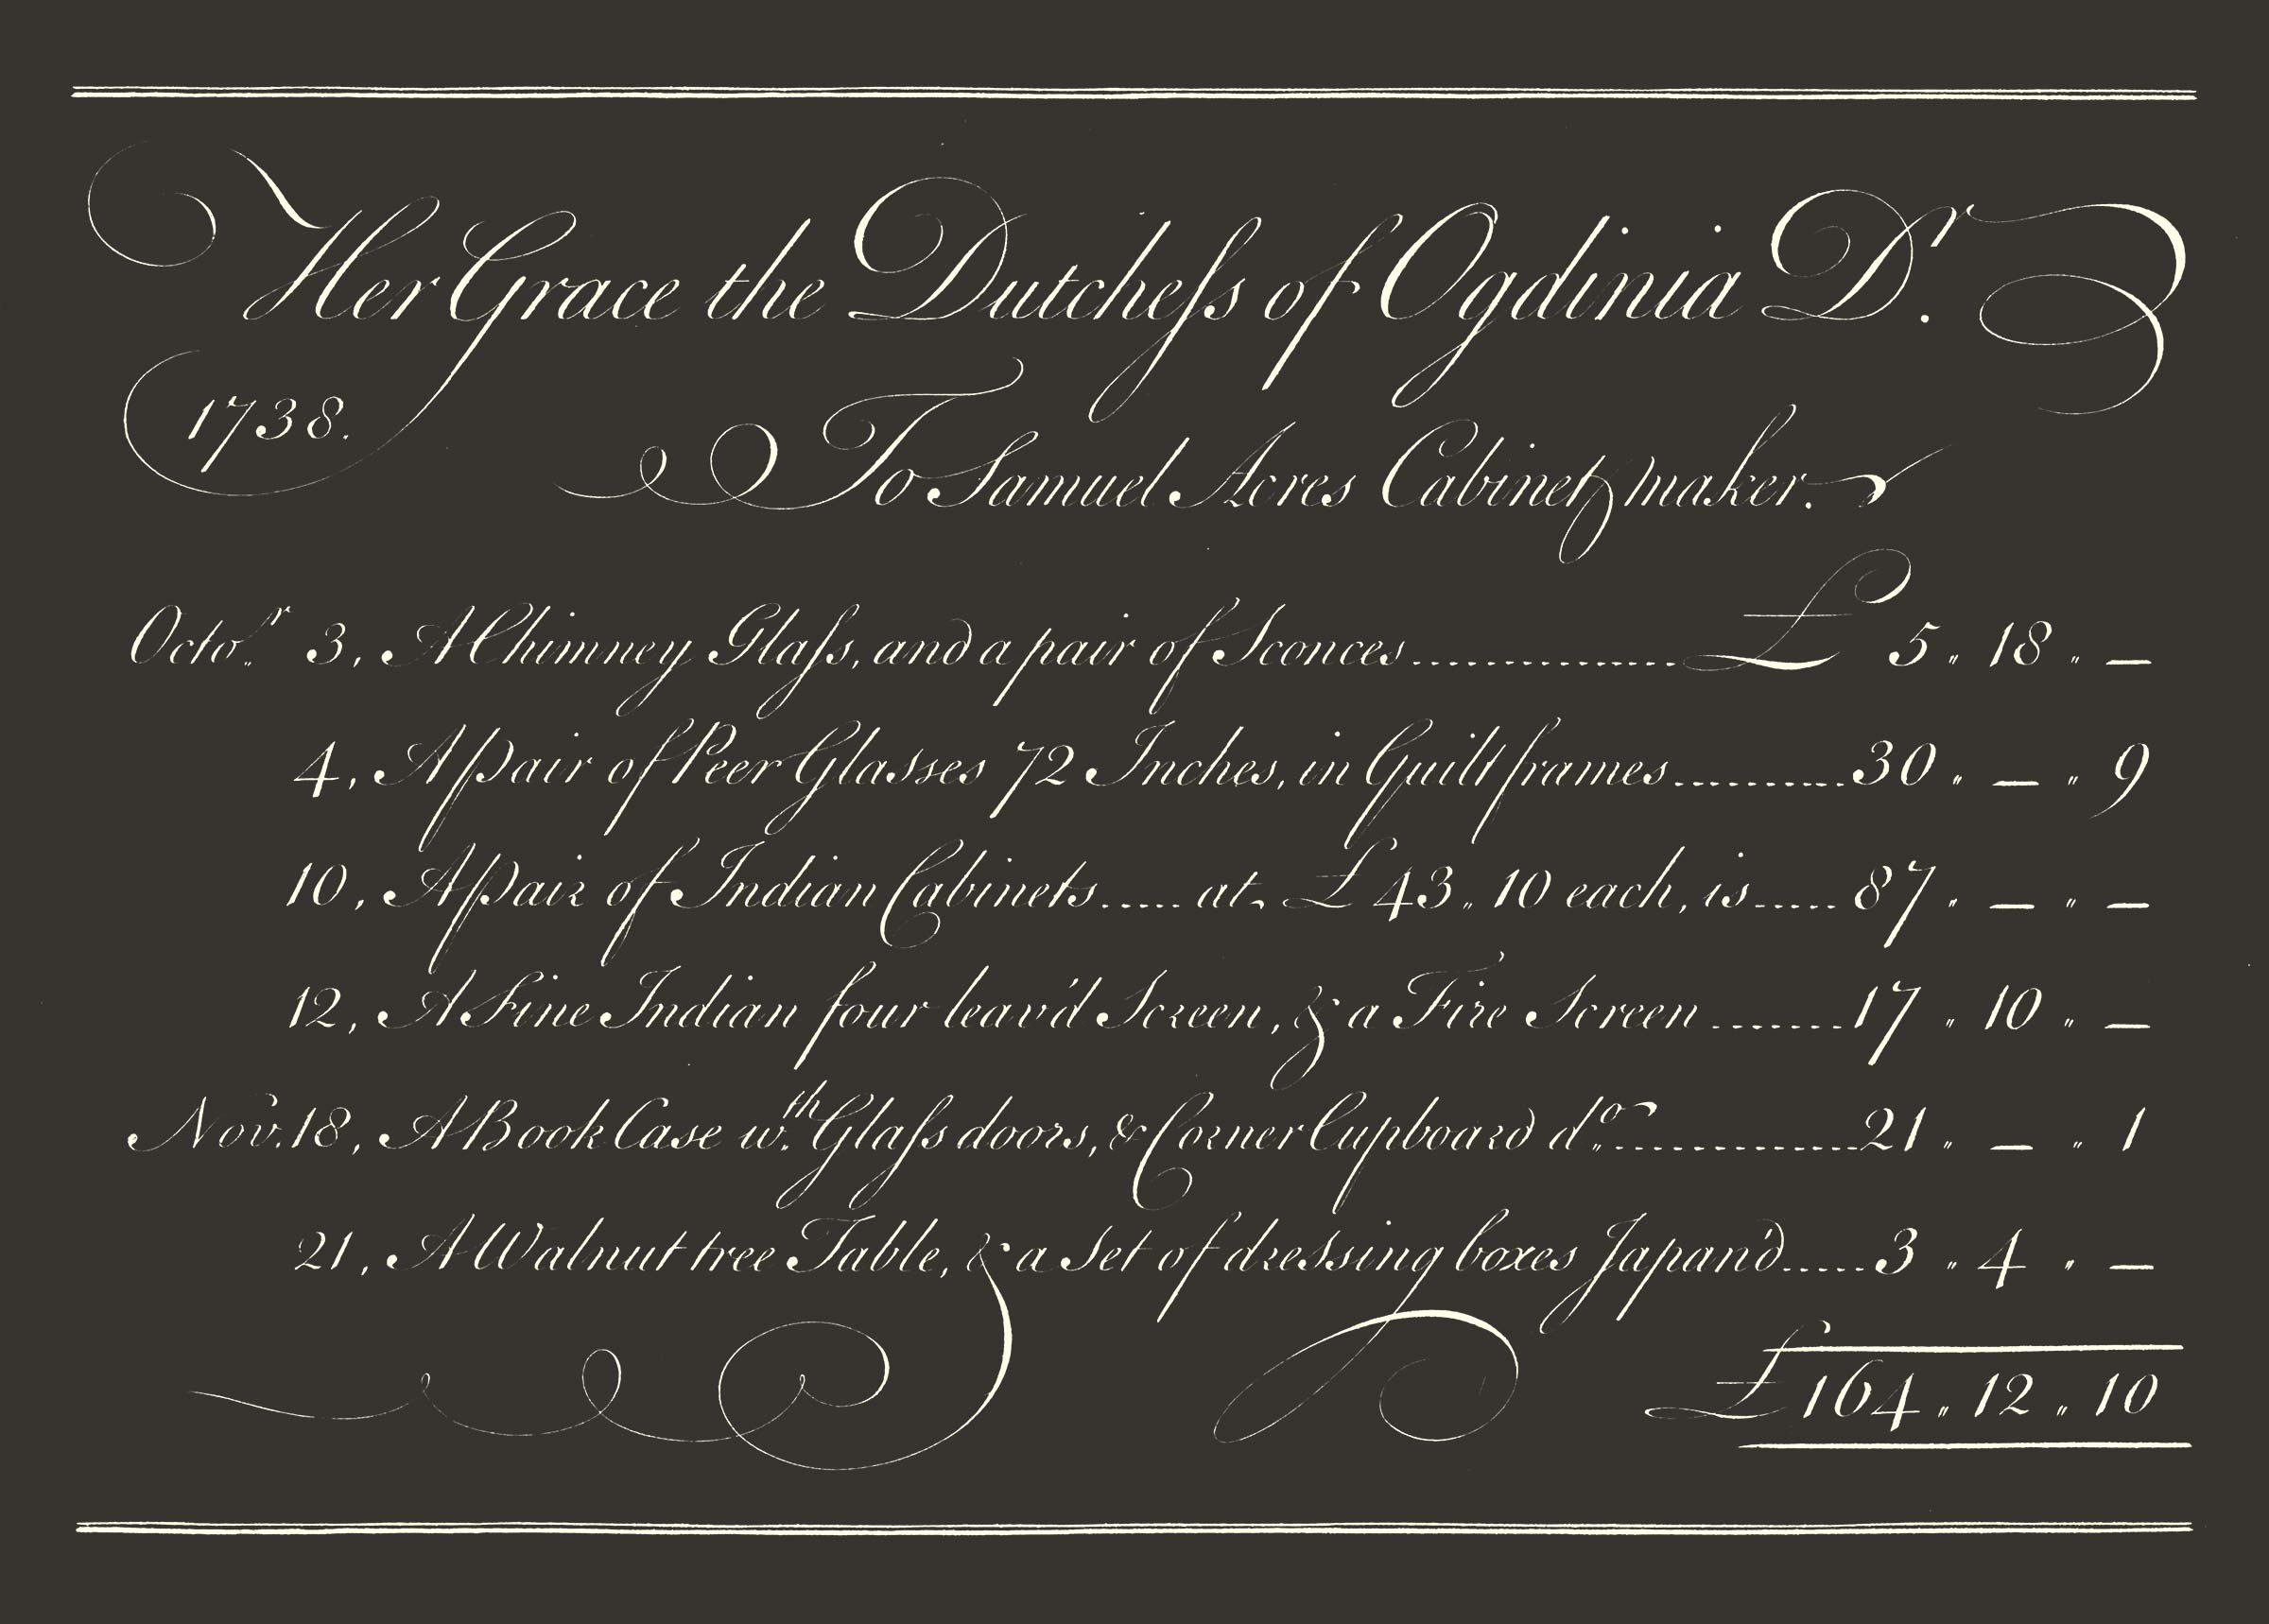 Her Grace the Dutcheſs of Ogdinia Dʳ.
1738.
To Samuel Acres Cabinet maker.
Octoʳ 3, A Chimney Glaſs, and a pair of Sconces ............... £ 5 〃 18 〃 —
4, A pair of Peer Glasses 72 Inches, in Guilt frames ........... 30 〃 — 〃 9
10, A pair of Indian Cabinets ..... at £ 43 〃 10 each, is ..... 87 〃 — 〃 —
12, A Fine Indian four leav'd Screen, & a Fire Screen ........ 17 〃 10 〃 —
Nov. 18, A Book Case w.ᵗʰ Glaſs doors, & Corner Cupboard dº .............. 21 〃 — 〃 1
21, A Walnut tree Table, & a Set of dressing boxes Japan'd ..... 3 〃 4 〃 —
£ 164 〃 12 〃 10